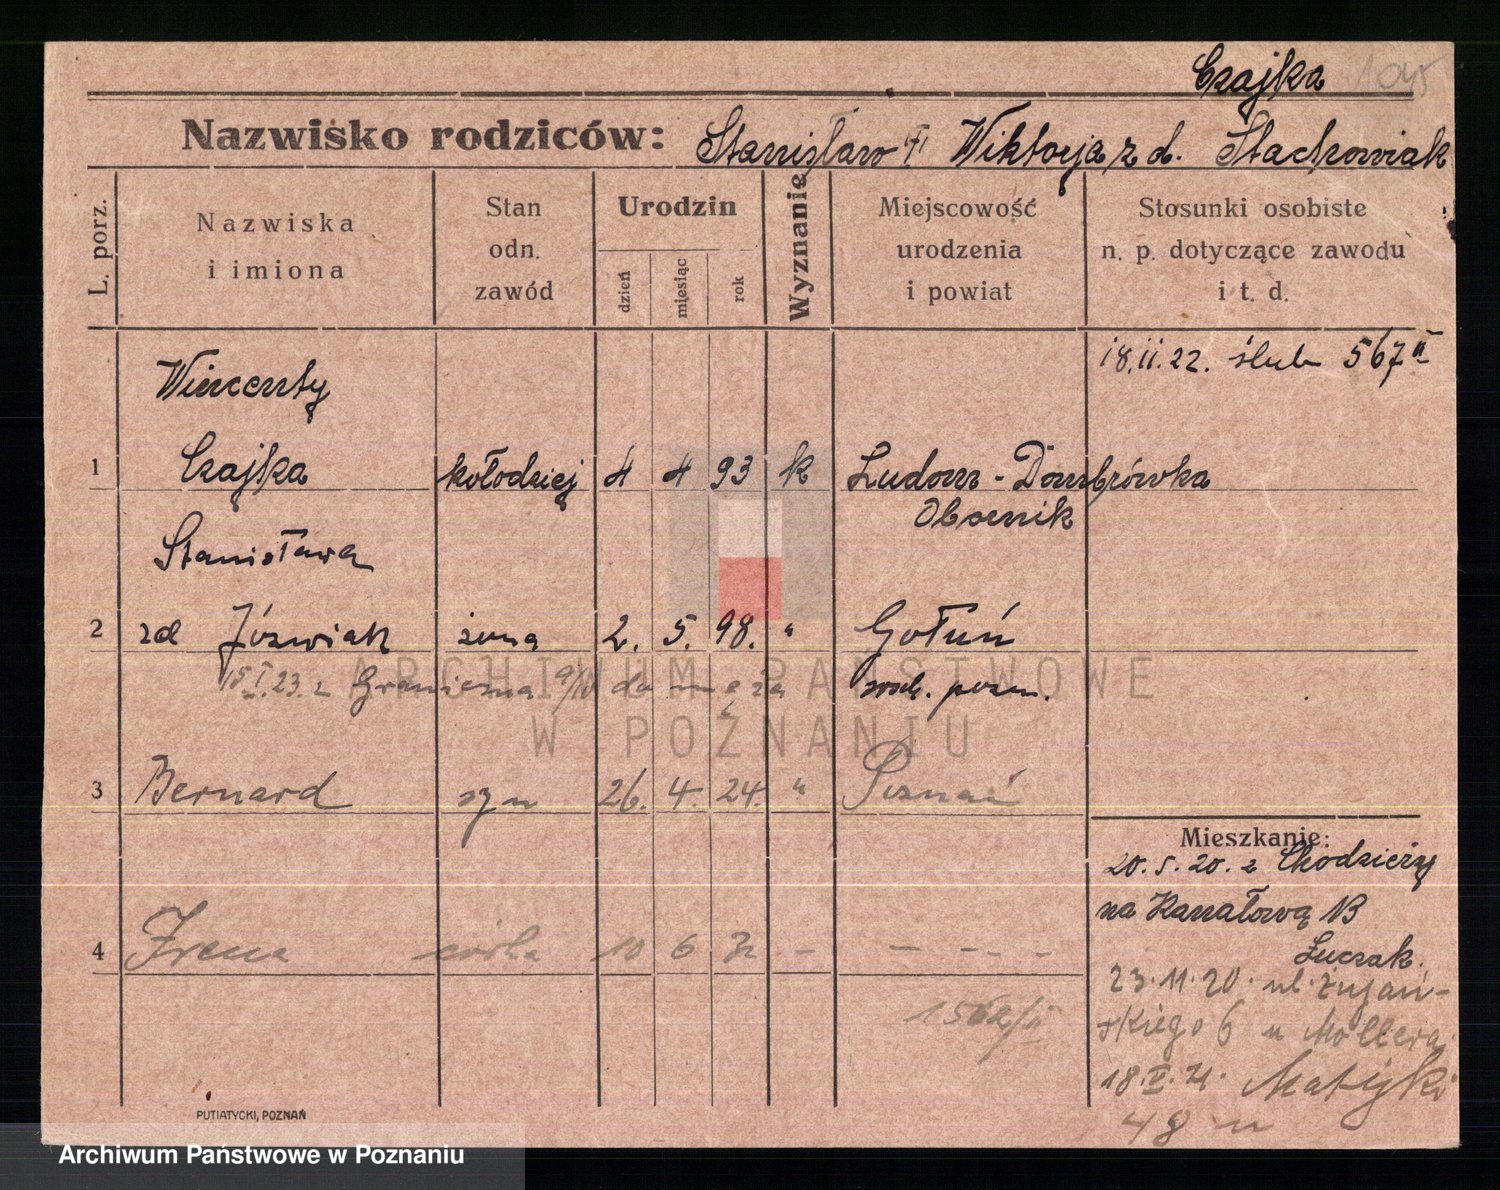 Czajka 1045
Nazwisko rodziców: Stanisław i Wiktorja z d. Stachowiak
L. porz.
Nazwiska i imiona
Stan odn. zawód
Urodzin
dzień
miesiąc
rok
Wyznanie
Miejscowość urodzenia i powiat
Stosunki osobiste n. p. dotyczące zawodu i t. d.
18.11.22. ślub 567 II
Wincenty
1 Czajka kołodziej 4 4 93 k Ludom-Dombrówka
Obornik
Stanisława
2 zd Józwiak żona 2. 5. 98. " Gołuń
15.I.23. z Graniczna 9/10 do męża wsch. pozn.
3 Bernard syn 26. 4. 24. " Poznań
4 Irena córka 10 6 - - - - -
1562/II
Mieszkanie:
20.5.20. z Chodzieży
na Kanałową 13
Łuczak.
23.11.20. ul. Żupań-
skiego 6 u Möllera
18. Matejki
48 u
PUTIATYCKI, POZNAŃ
ARCHIWUM PAŃSTWOWE
W POZNANIU
Archiwum Państwowe w Poznaniu